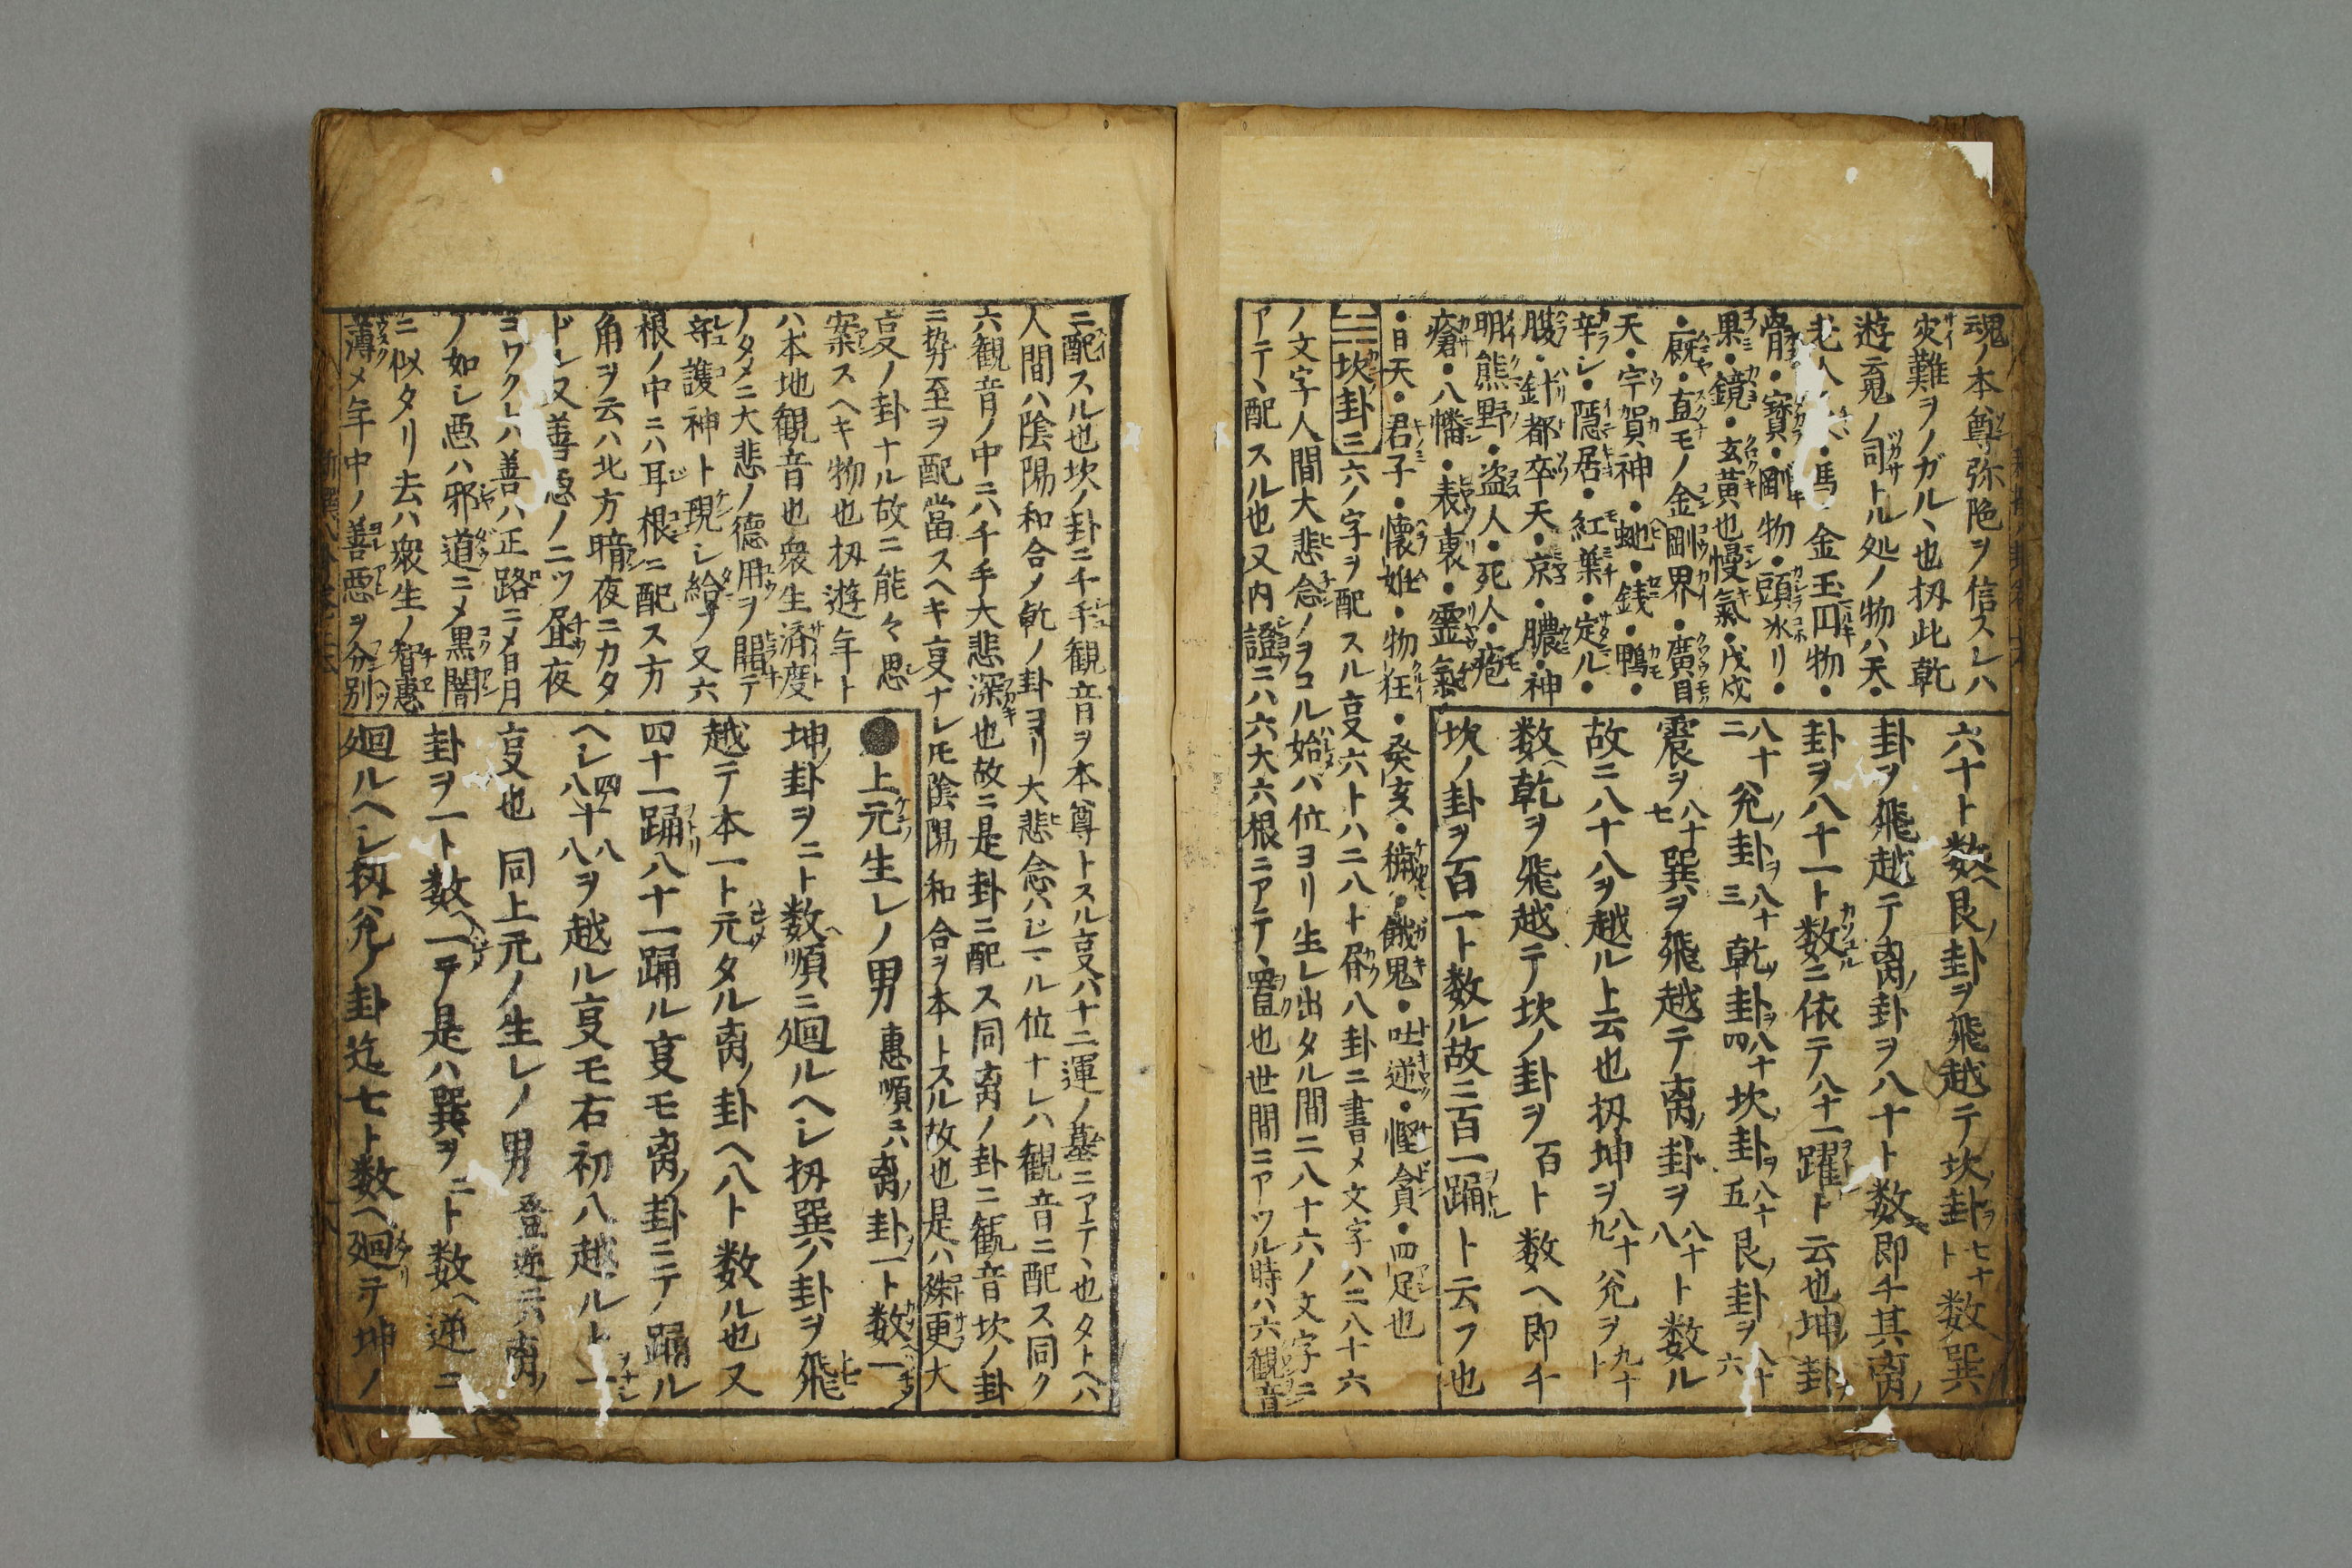 魂ノ本尊弥陁ヲ信スレハ
災難ヲノガルヽ也扨此乾
遊云鬼ノ司トル処ノ物ハ天・
老人・馬・金玉円物・
骨・寳・剛物・頭氷リ・
果・鏡・玄黄也慢氣・戊戌
・廐・直モノ金剛界・廣目
天・宇賀神・虵・銭・鴨・
辛シ・隠居・紅葉・定ル・
腹・針都卒天・京・膿・神
明熊野・盗人・死人・疱
瘡・八幡・裹・霊氣・
・日天・君子・懐妊・物狂・癸亥・穢・餓鬼・吐逆・慳貪・四足也
坎卦三六ノ字ヲ配スル㕝六ト八二八ト畨八卦ニ書メ文字八二八十六
ノ文字人間大悲念ノヲコル始ハ位ヨリ生レ出タル間二八十六ノ文字ニ
アテヽ配スル也又内證ニハ六大六根ニアテヽ置也世間ニアツル時ハ六観音
六十ト数ヘ艮ノ卦ヲ飛越テ坎ノ卦ヲ七十ト数巽
卦ヲ飛越テ离ノ卦ヲ八十ト数即チ其离ノ
卦ヲ八十一ト数ニ依テ八十一躍ト云也坤ノ卦ヲ
八十二兌ノ卦ヲ八十三乾ノ卦ヲ八十四坎ノ卦ヲ八十五艮ノ卦ヲ八十六
震ヲ八十七巽ヲ飛越テ离ノ卦ヲ八十八ト数ル
故ニ八十八ヲ越ル上云也扨坤ヲ八十九兌ヲ九十ト
数ヘ乾ヲ飛越テ坎ノ卦ヲ百ト数ヘ即チ
坎ノ卦ヲ百一ト数ル故ニ百一踊ト云フ也
ニ配スル也坎ノ卦ニ千手観音ヲ本尊トスル㕝八十二運ノ墓ニアテヽ也タトヘハ
人間ハ陰陽和合ノ乾ノ卦ヨリ大悲念ハシマル位ナレハ観音ニ配ス同ク
六観音ノ中ニハ千手大悲深也故ニ是卦ニ配ス同离ノ卦ニ観音坎ノ卦
ニ㔟至ヲ配當スヘキ㕝ナレ𪜈陰陽和合ヲ本トスル故也是ハ殊更大
㕝ノ卦ナル故ニ能々思
案スヘキ物也扨遊年ト
ハ本地観音也衆生済度
ノタメニ大悲ノ德用ヲ開テ
守護神ト現シ給フ又六
根ノ中ニハ耳根ニ配ス方
角ヲ云ハ北方暗夜ニカタ
ドレ又善悪ノ二ツ昼夜
ヨワクレハ善ハ正路ニメ日月
ノ如シ悪ハ邪道ニメ黒闇
ニ似タリ去ハ衆生ノ智惠
薄メ年中ノ善悪ヲ分別
●上元生レノ男惠順ニハ离ノ卦一ト数一
坤ノ卦ヲ二ト数ヘ順ニ廻ルヘシ扨巽ノ卦ヲ飛
越テ本一ト元タル离ノ卦ヘ八ト数ル也又
四十一踊八十一踊ル㕝モ离ノ卦ニテノ踊ル
ヘシ四十八八十八ヲ越ル㕝モ右初八越ルト一
㕝也同上元ノ生レノ男登逆云ハ离ノ
卦ヲ一ト数ヘ一テ是ハ巽ヲ二ト数ヘ逆ニ
廻ルヘシ扨兌ノ卦迄七ト数ヘ廻テ坤ノ